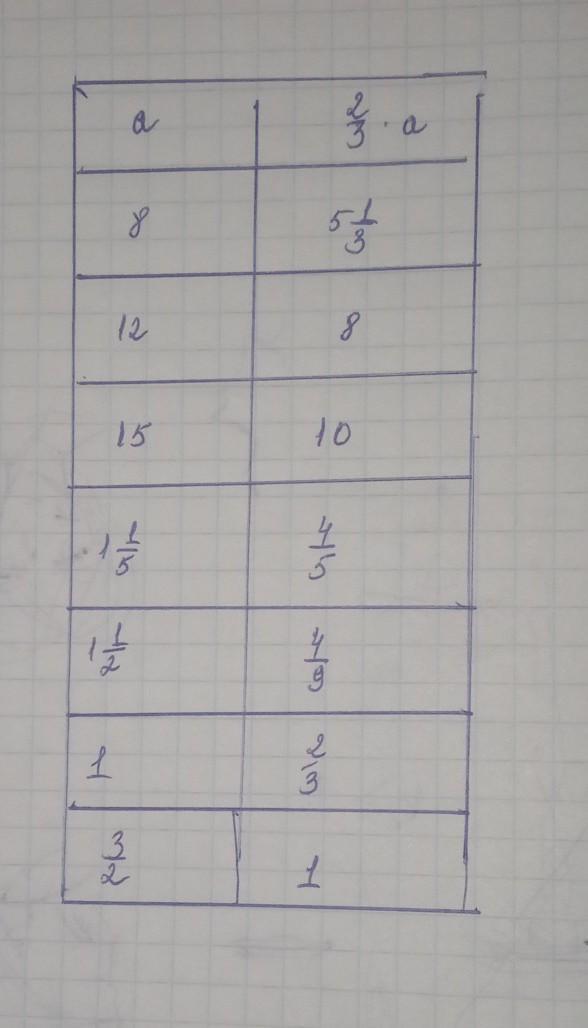 a 2/3 · a
8 5 1/3
12 8
15 10
1 1/5 4/5
1 1/2 4/9
1 2/3
3/2 1